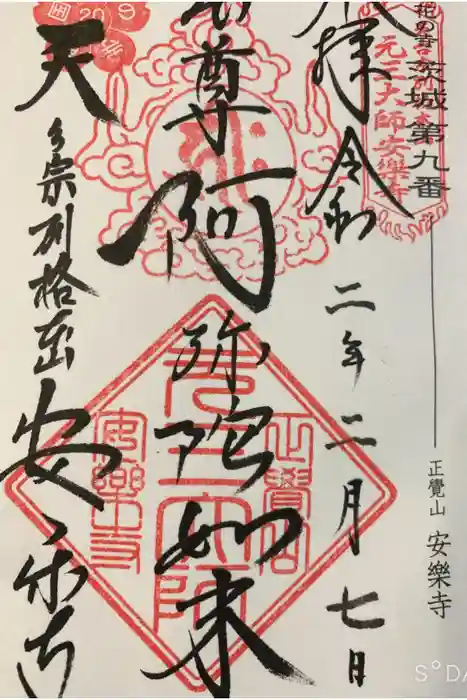 茨城第九番
正覺山 安樂寺
元三大師安樂寺
奉拝 令和二年二月七日
本尊 阿弥陀如来
天台宗別格 安楽寺
正覺山
元三大師
安樂寺
20
S°DA